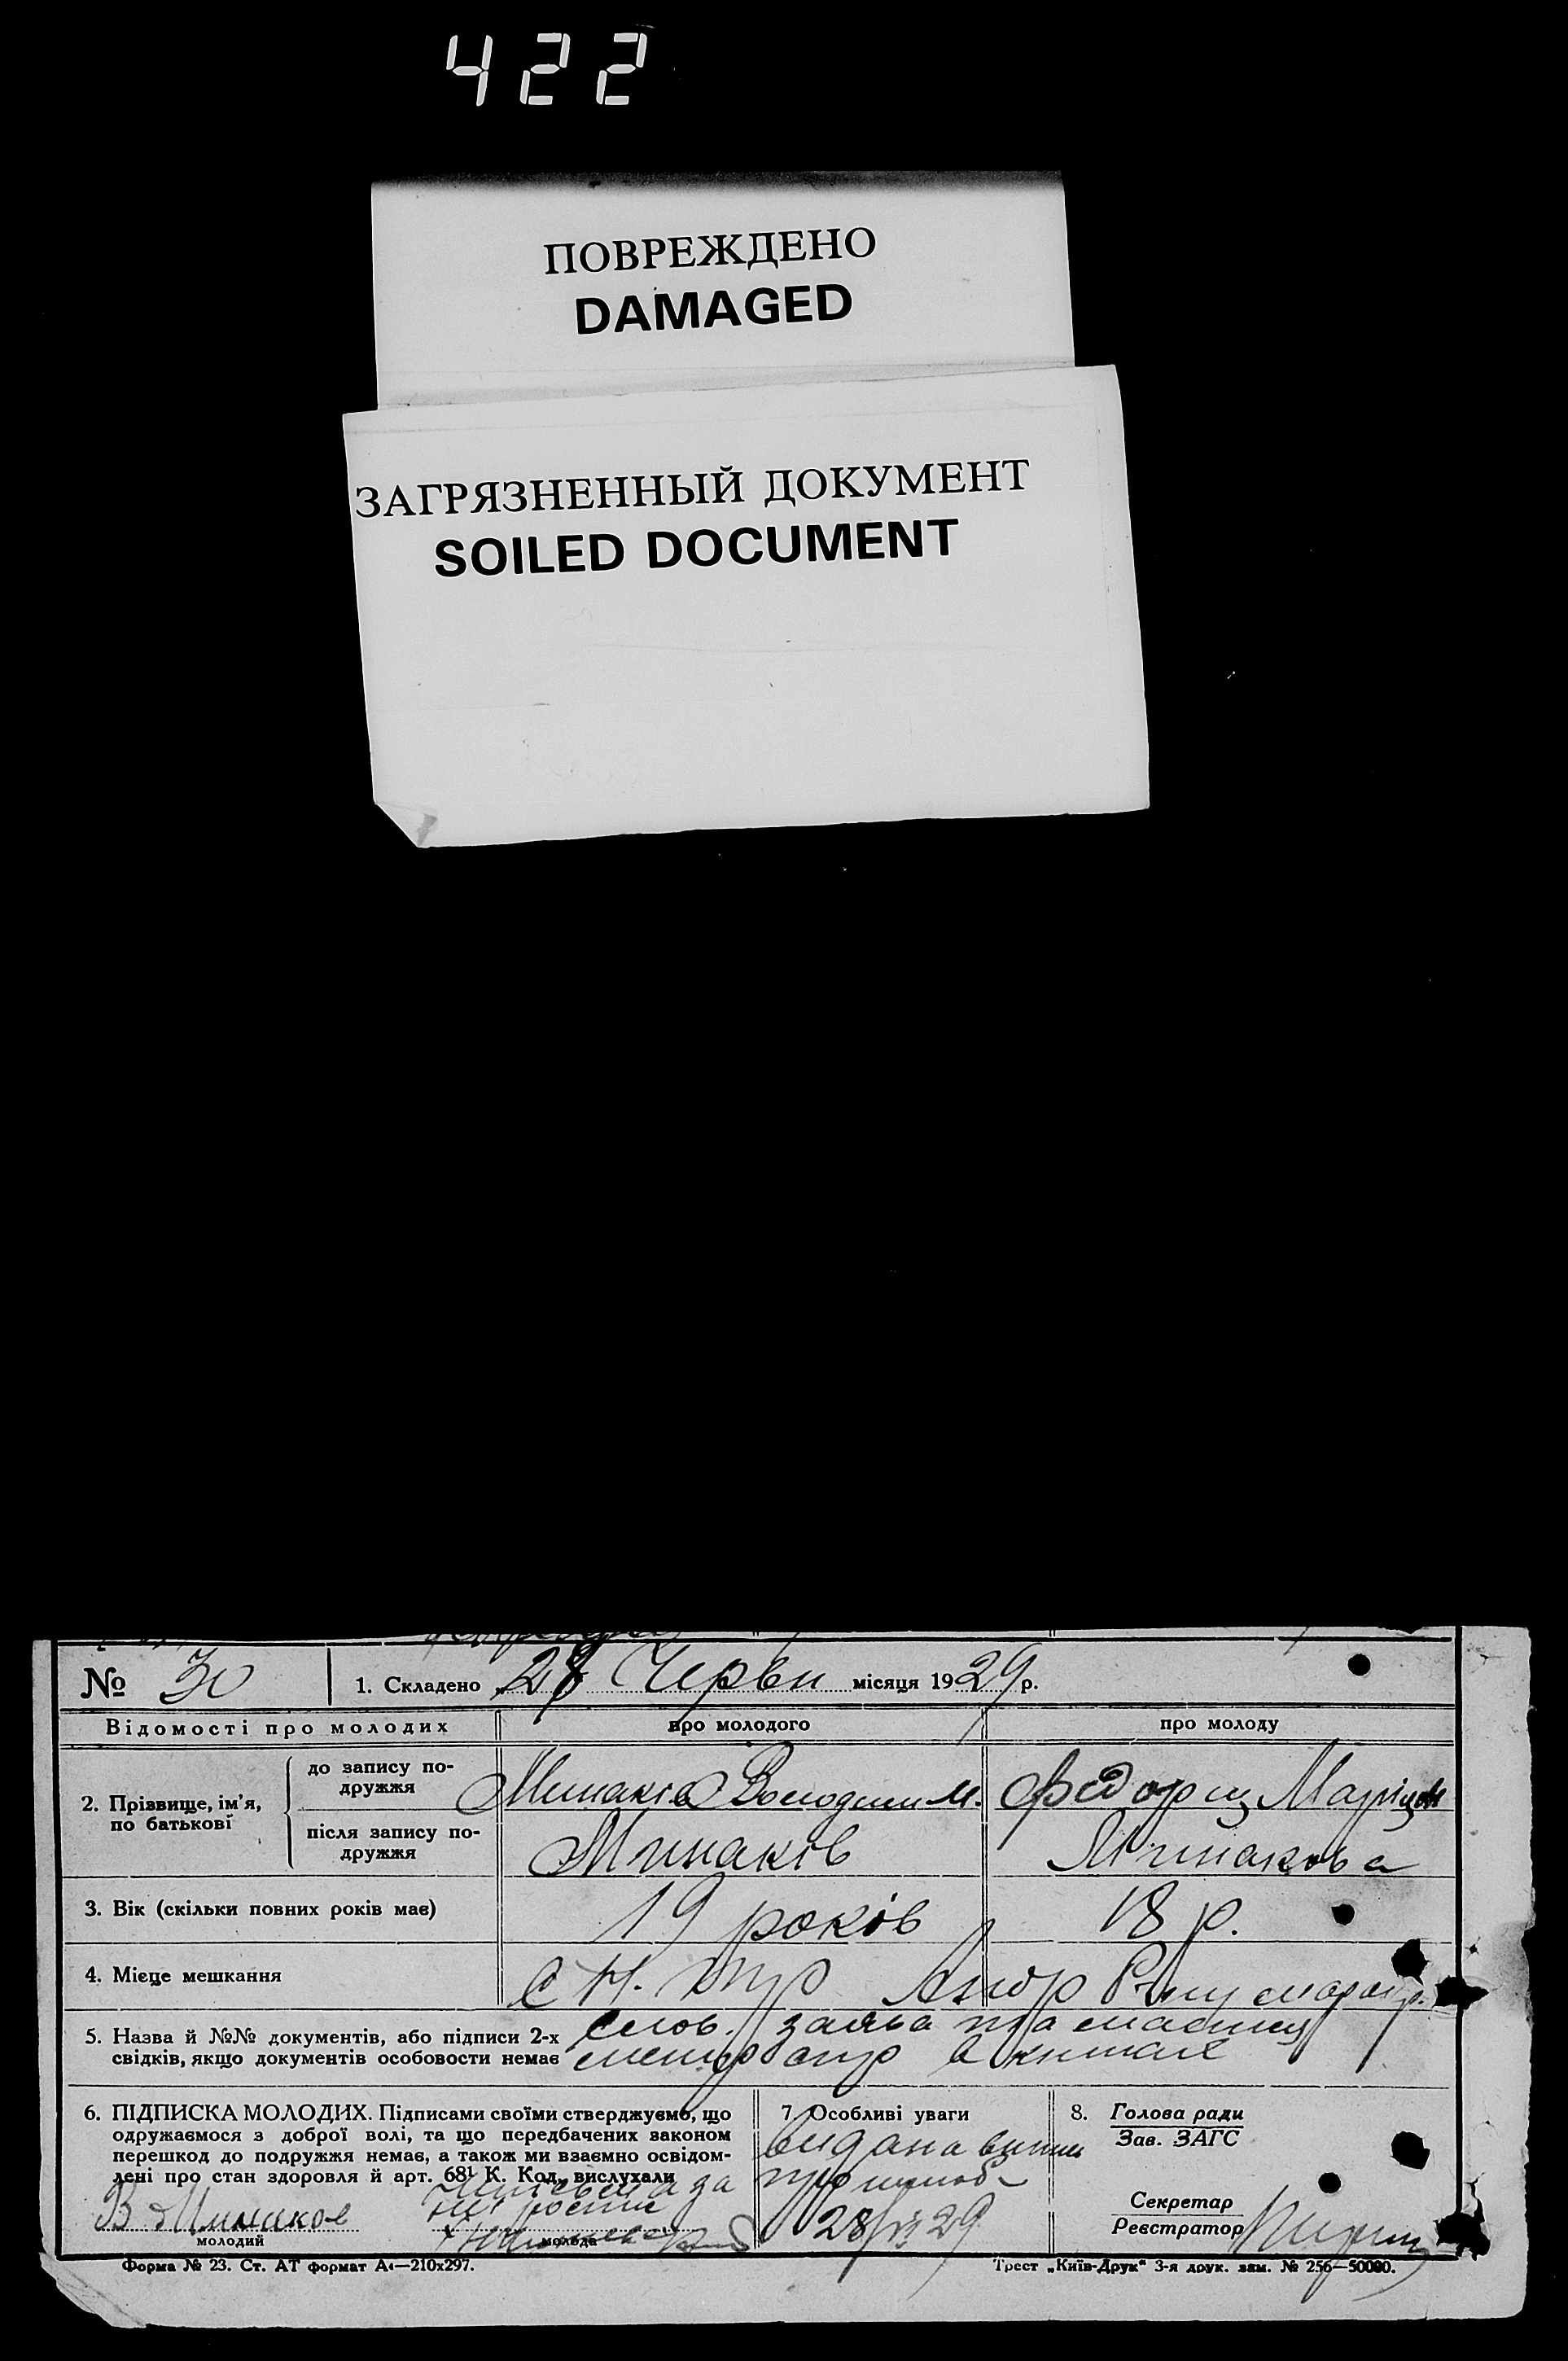 422
ПОВРЕЖДЕНО
DAMAGED
ЗАГРЯЗНЕННЫЙ ДОКУМЕНТ
SOILED DOCUMENT
№ 30
1. Складено 28 Червн місяця 1929 р.
Відомості про молодих
про молодого
про молоду
2. Прізвище, ім'я,
по батькові
до запису по-
дружжя
Минаків Володим М.
Федорец
після запису по-
дружжя
Минаків
Минакова
3. Вік (скільки повних років має)
19 років
18 р.
4. Місце мешкання
с Н.
5. Назва й №№ документів, або підписи 2-х
свідків, якщо документів особовости немає
заява
6. ПІДПИСКА МОЛОДИХ. Підписами своїми стверджуємо, що
одружаємося з доброї волі, та що передбачених законом
перешкод до подружжя немає, а також ми взаємно освідом-
лені про стан здоровля й арт. 68¹ К. Код. вислухали
В Минаков
молодий
молода
7. Особливі уваги
видана
28/VI 29
8. Голова ради
Зав. ЗАГС
Секретар
Реєстратор
Форма № 23. Ст. АТ формат А4—210х297.
Трест „Київ-Друк" 3-я друк. зам. № 256—50000.